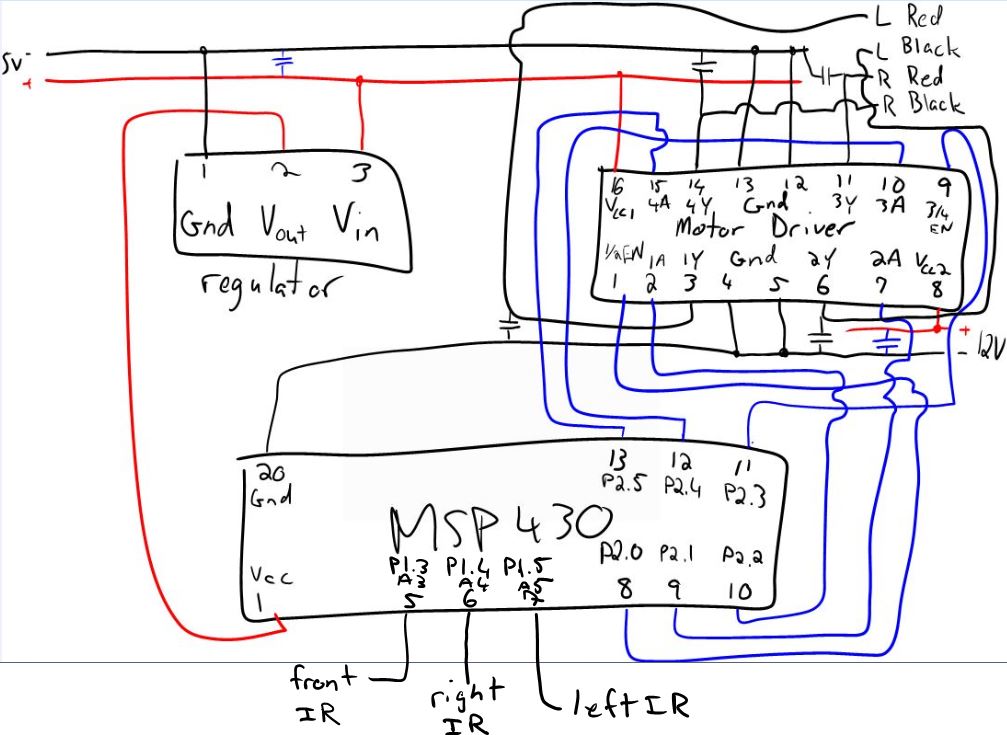 L Red
5v -
L Black
+
R Red
R Black
1 2 3
Gnd Vout Vin
regulator
16 15 14 13 12 11 10 9
Vcc1 4A 4Y Gnd 3Y 3A 3/4 EN
Motor Driver
1/2EN 1A 1Y Gnd 2Y 2A Vcc2
1 2 3 4 5 6 7 8
+
- 12V
20
Gnd
13 12 11
P2.5 P2.4 P2.3
MSP430
P1.3 P1.4 P1.5
A3 A4 A5
5 6 7
P2.0 P2.1 P2.2
8 9 10
Vcc
1
front
IR
right
IR
left IR